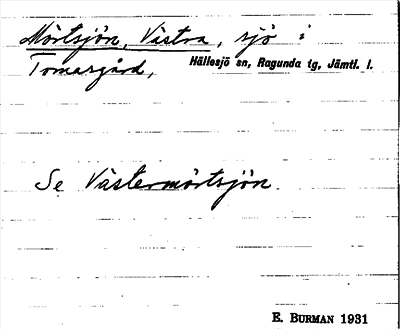 Mörtsjön, Västra, sjö i
Tomasgård, Hällesjö sn, Ragunda tg, Jämtl. l.
Se Västermörtsjön.
E. BURMAN 1931